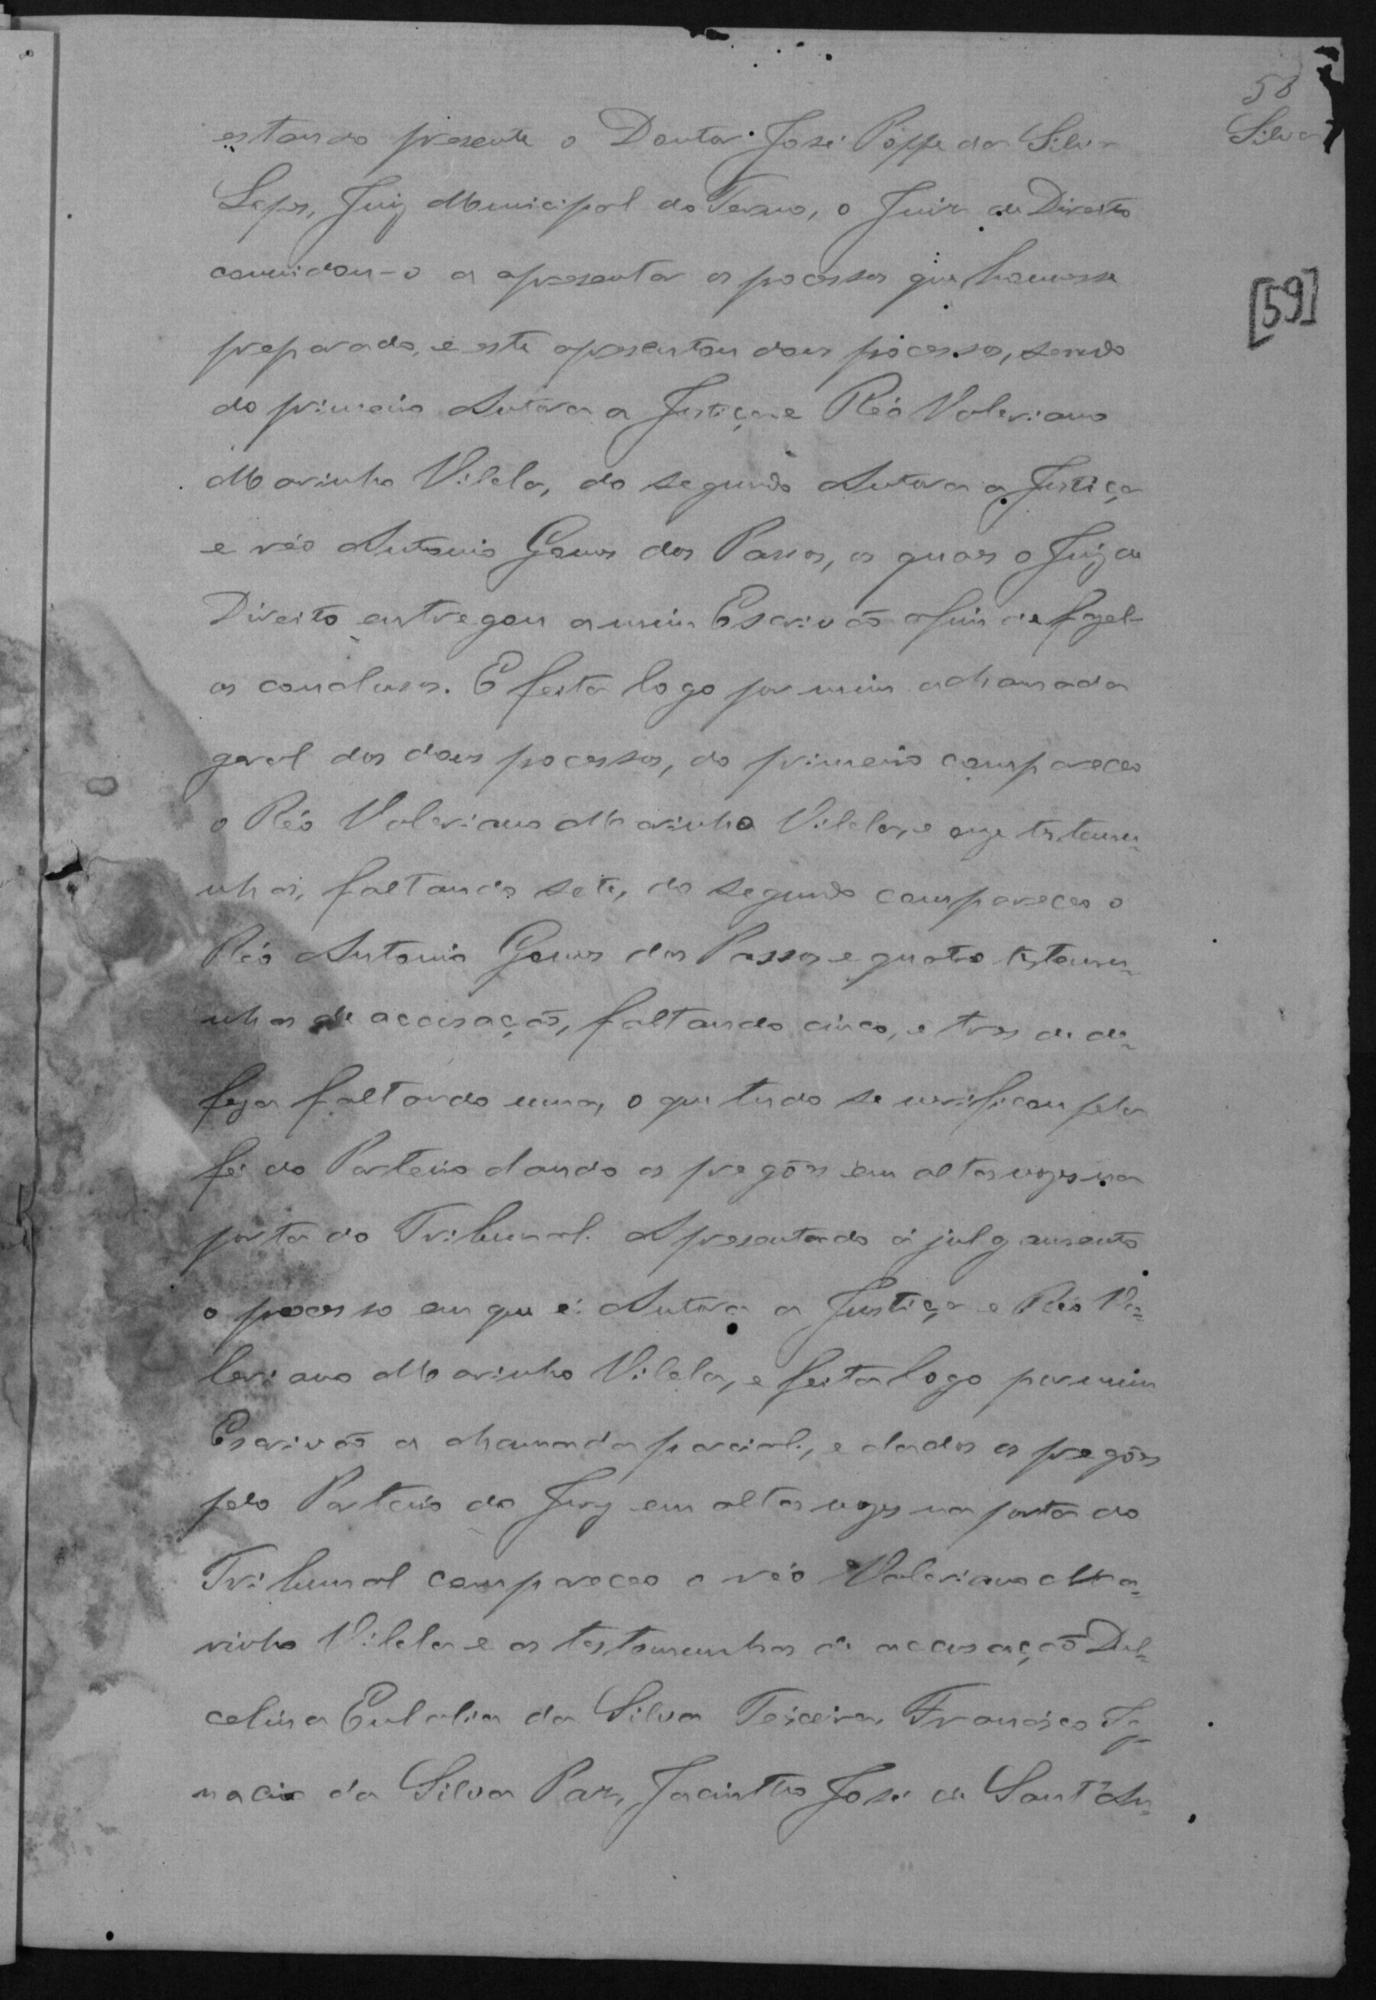 58
Silva
[59]
estando presente o Doutor José Póppe da Silva
Lopes, Juiz Municipal do Termo, o Juiz de Direito
convidou-o a apresentar os pocessos que houvesse
preparado, e este apresentou dous pocessos, sendo
do primeiro Autora a Justiça e Réo Valeriano
Marinho Vilela, do segundo Autora a Justiça
e réo Antonio Gomes dos Passos, os quaes o Juiz de
Direito entregou a mim Escrivão afim de fazel-
os conclusos. E feita logo por mim a chamada
geral dos dous pocessos, do primeiro compareceo
o Réo Valeriano Marinho Vilela, e onze testemu-
nhas, faltando sete, do segundo compareceo o
Réo Antonio Gomes dos Passos e quatro testemu-
nhas de accusação, faltando cinco, e tres de de-
feza faltando uma, o que tudo se verificou pela
fé do Porteiro dando os pregões em altas vozes na
porta do Tribunal. Apresentado á julgamento
o pocesso em que é Autora a Justiça e Réo Va-
leriano Marinho Vilela, e feita logo por mim
Escrivão a chamada parcial, e dados os pregões
pelo Porteiro do Jury em altas vozes na porta do
Tribunal compareceo o réo Valeriano Ma-
rinho Vilela e as testemunhas de accusação Dul-
celina Eulalia da Silva Teixeira, Francisco Ig-
nacio da Silva Paz, Jacintho José de Sant'An-